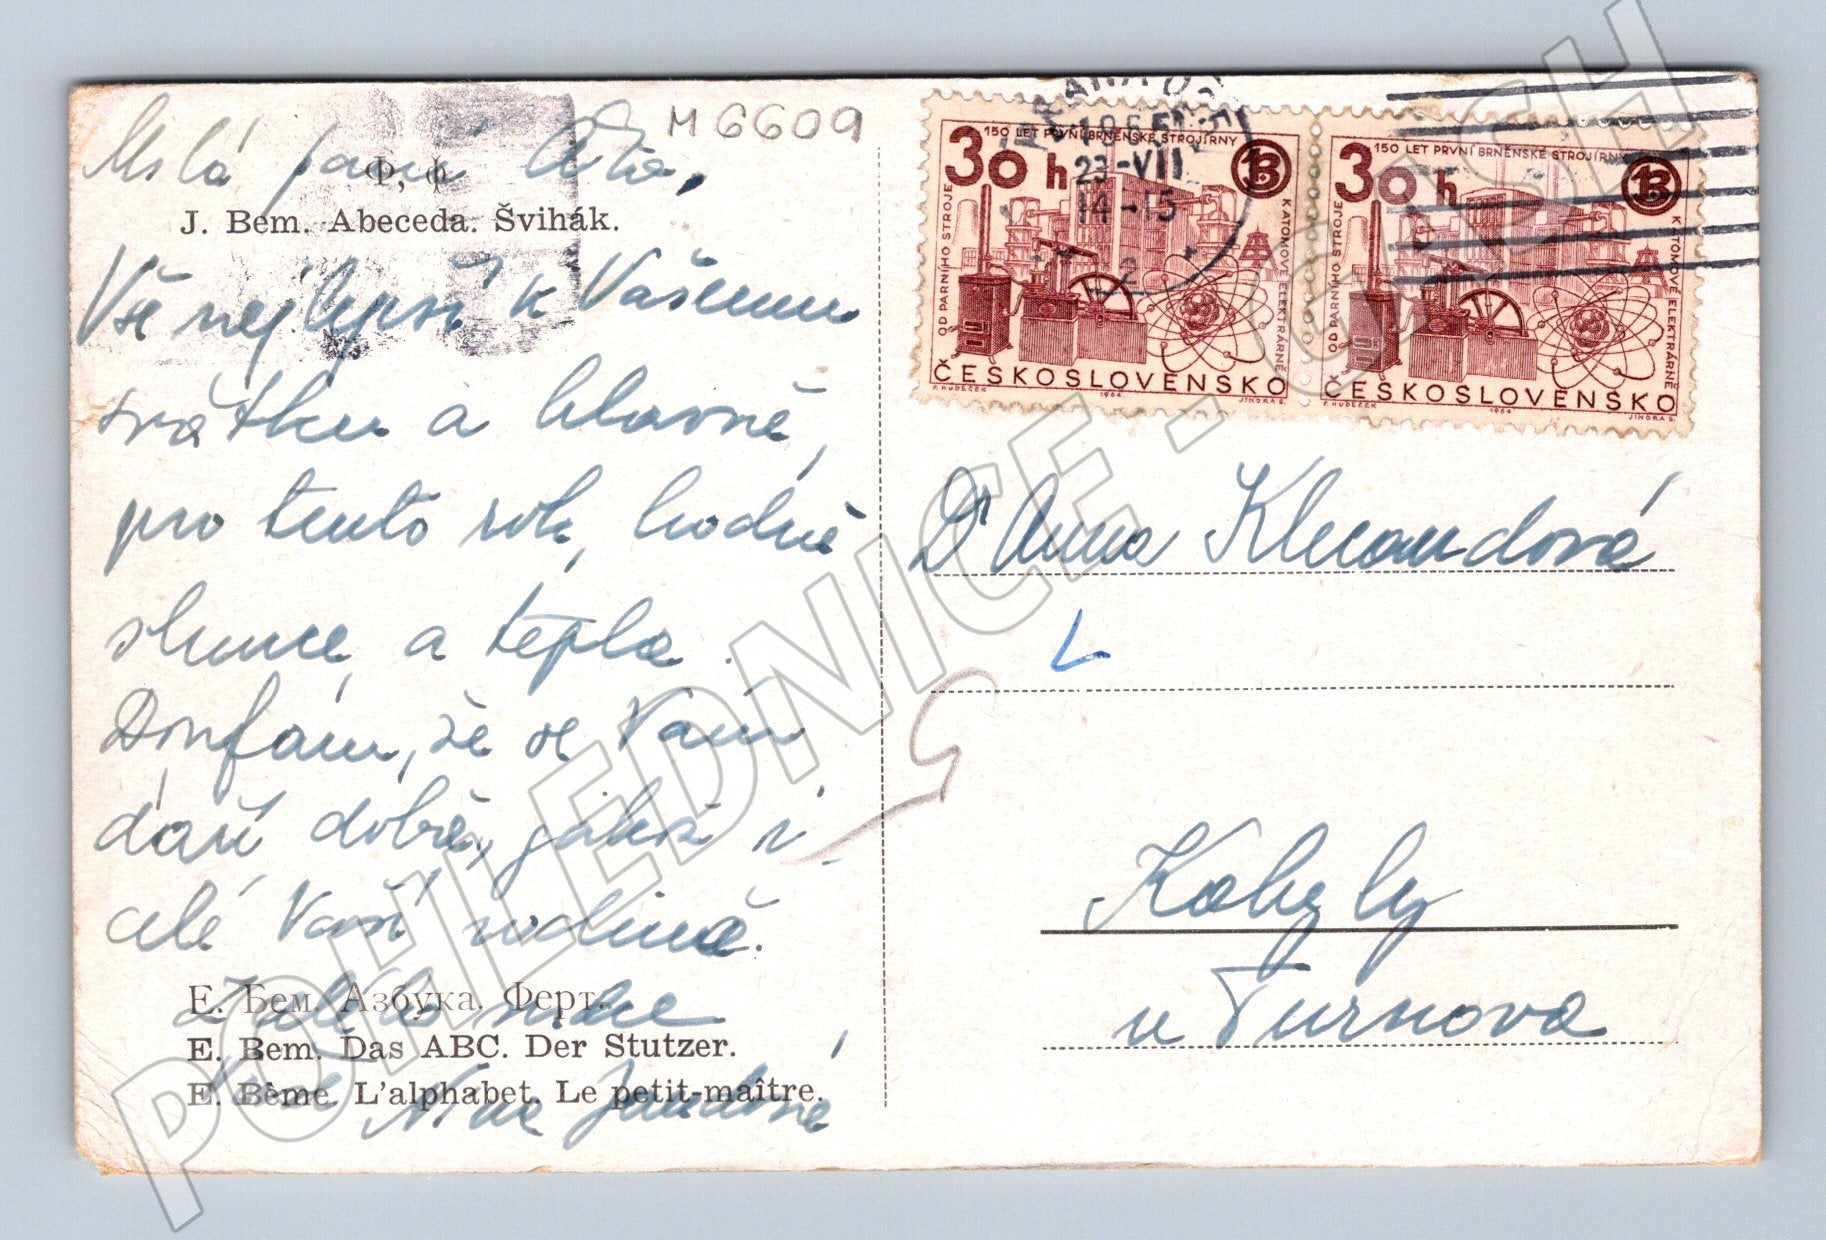 M 6609
Milá paní
Ф, ф
J. Bem. Abeceda. Švihák.
Vše nejlepší k Vašemu
svátku a hlavně,
pro tento rok, hodně
slunce a tepla.
Doufám, že se Vám
daří dobře, jakož i
celé Vaší rodině.
Е. Бем. Азбука. Фертъ.
E. Bem. Das ABC. Der Stutzer.
E. Bème. L'alphabet. Le petit-maître.
1965
23-VII
14-15
2
30 h
150 LET PRVNÍ BRNĚNSKÉ STROJÍRNY
1B
OD PARNÍHO STROJE
K ATOMOVÉ ELEKTRÁRNĚ
ČESKOSLOVENSKO
F. HUDEČEK 1964 JINDRA S.
30 h
150 LET PRVNÍ BRNĚNSKÉ STROJÍRNY
1B
OD PARNÍHO STROJE
K ATOMOVÉ ELEKTRÁRNĚ
ČESKOSLOVENSKO
F. HUDEČEK 1964 JINDRA S.
Dr Anna
Kobyly
u Turnova
POHLEDNICE - CASH